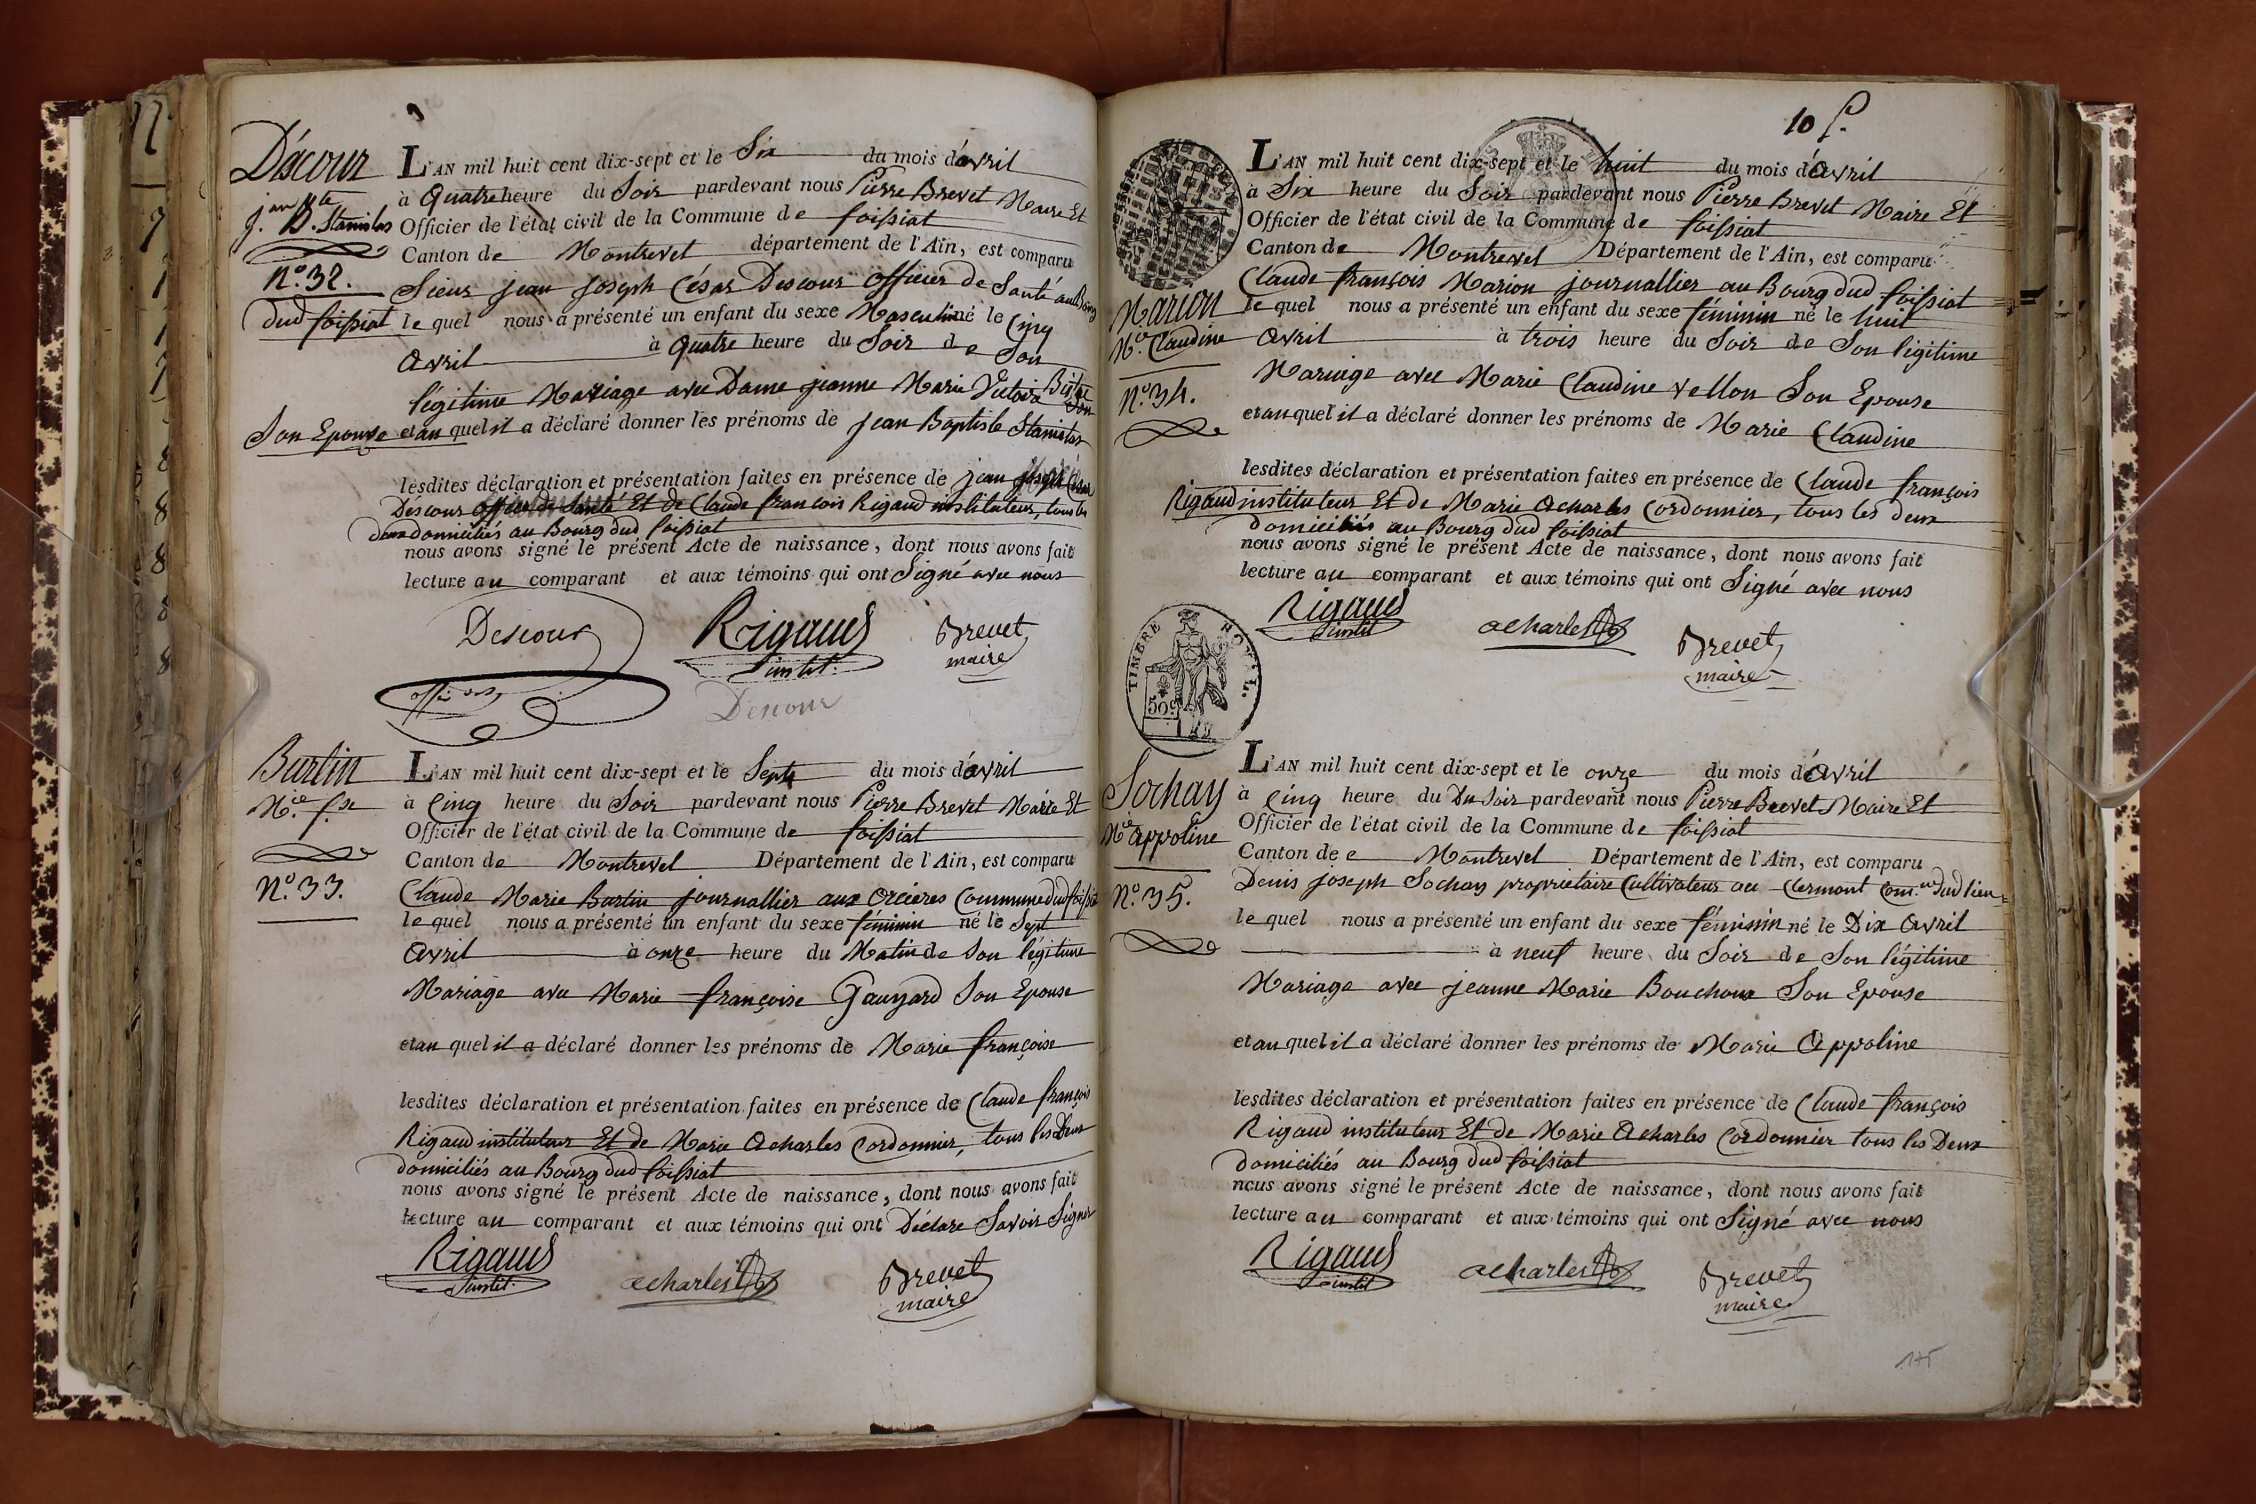 Déscour
jean Bte
j. B. Stanislas
N.o 32.
dud foissiat
L'AN mil huit cent dix-sept et le Six du mois d'avril
à Quatre heure du Soir pardevant nous Pierre Brevet Maire Et
Officier de l'état civil de la Commune de foissiat
Canton de Montrevel département de l'Ain, est comparu
Sieur jean joseph César Descour officier de Santé au Bourg
le quel nous a présenté un enfant du sexe Masculin né le Cinq
avril à Quatre heure du Soir de Son
légitime Mariage avec Dame jeanne Marie Victoire
Son Epouse et au quel il a déclaré donner les prénoms de jean Baptiste Stanislas
lesdites déclaration et présentation faites en présence de jean joseph César
Déscour officier de Santé Et de Claude françois Rigaud instituteur, tous les
deux domiciliés au Bourg dud foissiat
nous avons signé le présent Acte de naissance, dont nous avons fait
lecture au comparant et aux témoins qui ont Signé avec nous
Descour
Rigaud
instit.
Brevet
maire
Descour
Burtin
M.ie f.se
N.o 33.
L'AN mil huit cent dix-sept et le Sept du mois d'avril
à Cinq heure du Soir pardevant nous Pierre Brevet Maire Et
Officier de l'état civil de la Commune de foissiat
Canton de Montrevel Département de l'Ain, est comparu
Claude Marie Burtin journallier aux Orcières Commune dud foissiat
le quel nous a présenté un enfant du sexe féminin né le Sept
avril à onze heure du Matin de Son légitime
Mariage avec Marie françoise Gauyard Son Epouse
et au quel il a déclaré donner les prénoms de Marie françoise
lesdites déclaration et présentation faites en présence de Claude françois
Rigaud instituteur Et de Marie Acharles Cordonnier, tous les Deux
domiciliés au Bourg dud foissiat
nous avons signé le présent Acte de naissance, dont nous avons fait
lecture au comparant et aux témoins qui ont Déclaré Savoir Signer
Rigaud
instit.
acharles
Brevet
maire
10
Marion
M.ie Claudine
N.o 34.
L'AN mil huit cent dix-sept et le huit du mois d'avril
à Six heure du Soir pardevant nous Pierre Brevet Maire Et
Officier de l'état civil de la Commune de foissiat
Canton de Montrevel Département de l'Ain, est comparu
Claude françois Marion journallier au Bourg dud foissiat
le quel nous a présenté un enfant du sexe féminin né le huit
avril à trois heure du Soir de Son légitime
Mariage avec Marie Claudine Vellon Son Epouse
et au quel il a déclaré donner les prénoms de Marie Claudine
lesdites déclaration et présentation faites en présence de Claude françois
Rigaud instituteur Et de Marie Acharles Cordonnier, tous les deux
domiciliés au Bourg dud foissiat
nous avons signé le présent Acte de naissance, dont nous avons fait
lecture au comparant et aux témoins qui ont Signé avec nous
Rigaud
instit
acharles
Brevet
maire
TIMBRE ROYAL.
50c
Sochay
M.ie appoline
N.o 35.
L'AN mil huit cent dix-sept et le onze du mois d'avril
à Cinq heure du Du Soir pardevant nous Pierre Brevet Maire Et
Officier de l'état civil de la Commune de foissiat
Canton de Montrevel Département de l'Ain, est comparu
Denis joseph Sochay proprietaire Cultivateur au Clermont Com.ne dud lieu
le quel nous a présenté un enfant du sexe féminin né le Dix avril
à neuf heure du Soir de Son légitime
Mariage avec jeanne Marie Bouchoux Son Epouse
et au quel il a déclaré donner les prénoms de Marie Appoline
lesdites déclaration et présentation faites en présence de Claude françois
Rigaud instituteur Et de Marie Acharles Cordonnier tous les Deux
domiciliés au Bourg dud foissiat
nous avons signé le présent Acte de naissance, dont nous avons fait
lecture au comparant et aux témoins qui ont Signé avec nous
Rigaud
instit
acharles
Brevet
maire